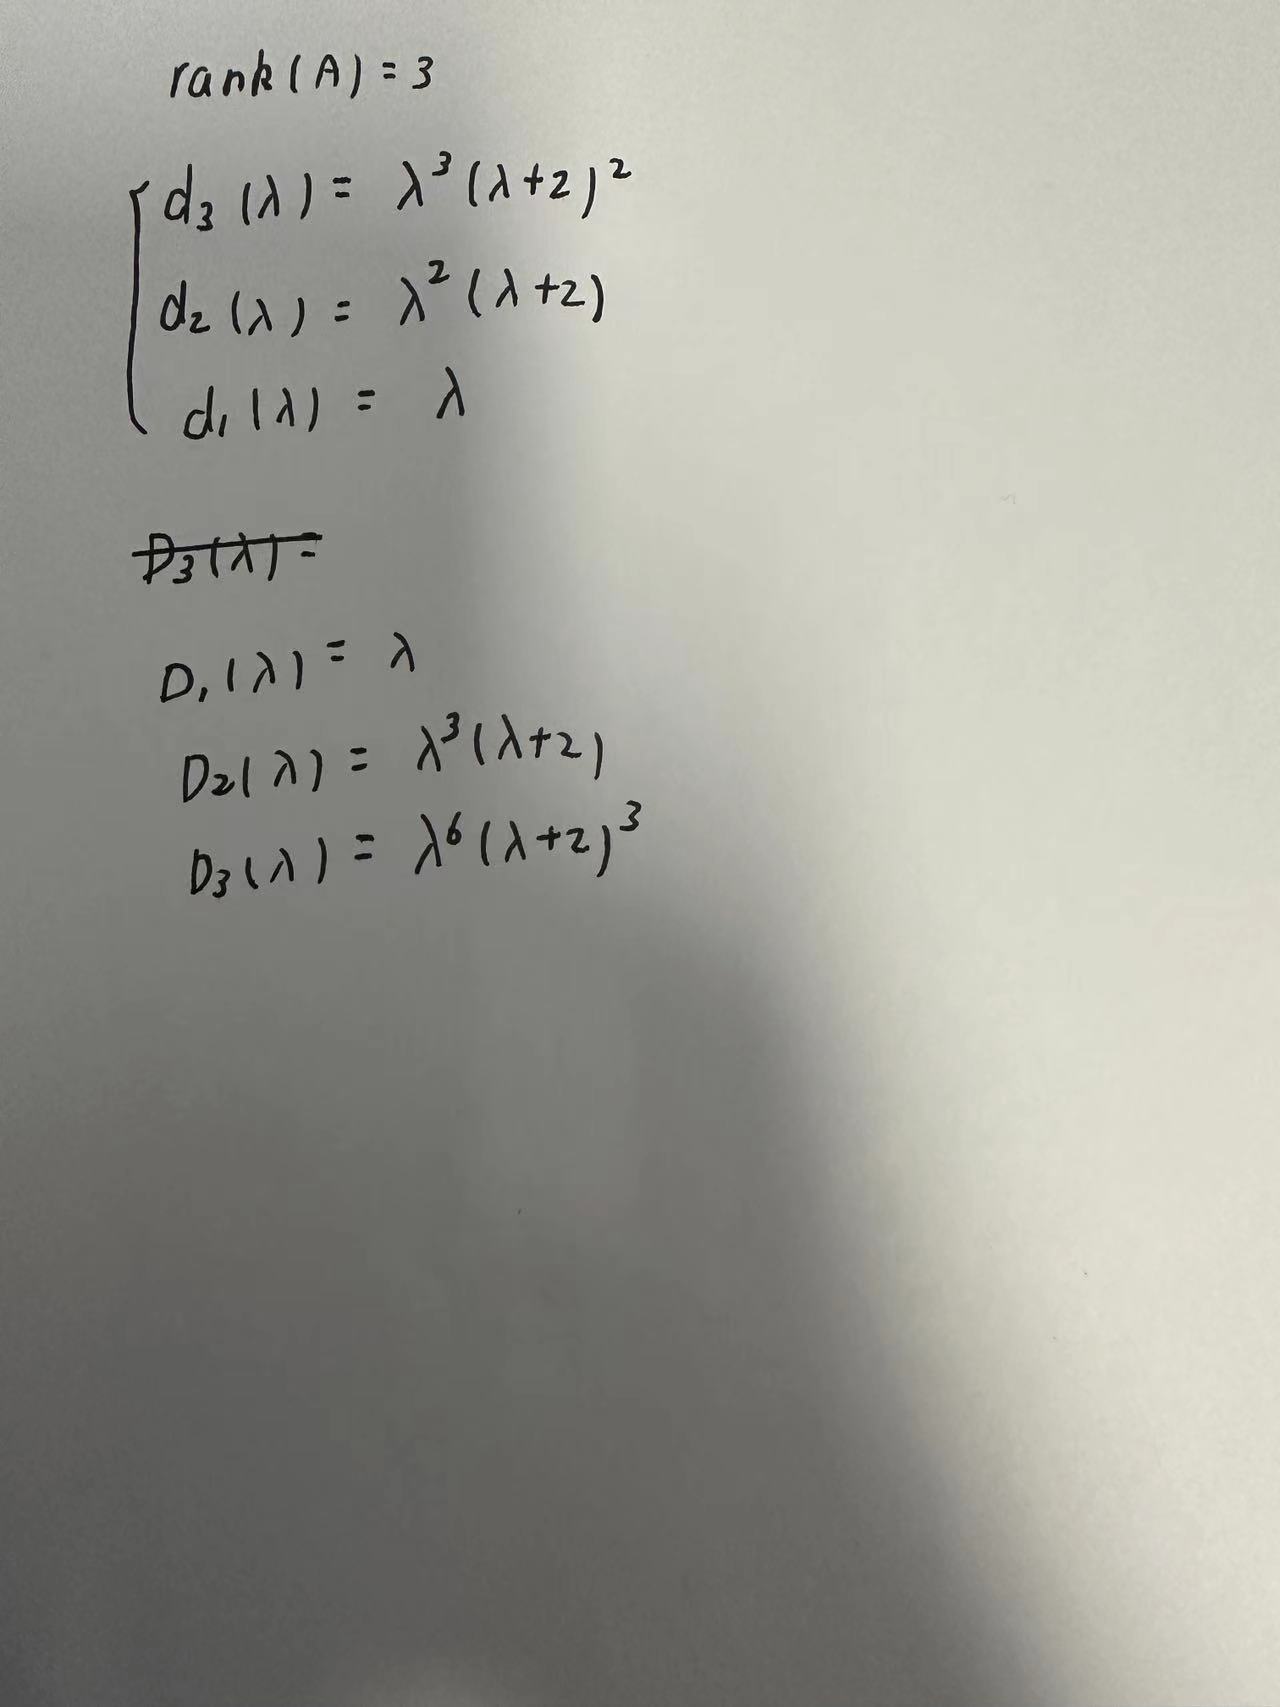 rank(A)=3
d₃(λ) = λ³(λ+2)²
d₂(λ) = λ²(λ+2)
d₁(λ) = λ
D₃(λ)=
D₁(λ) = λ
D₂(λ) = λ³(λ+2)
D₃(λ) = λ⁶(λ+2)³